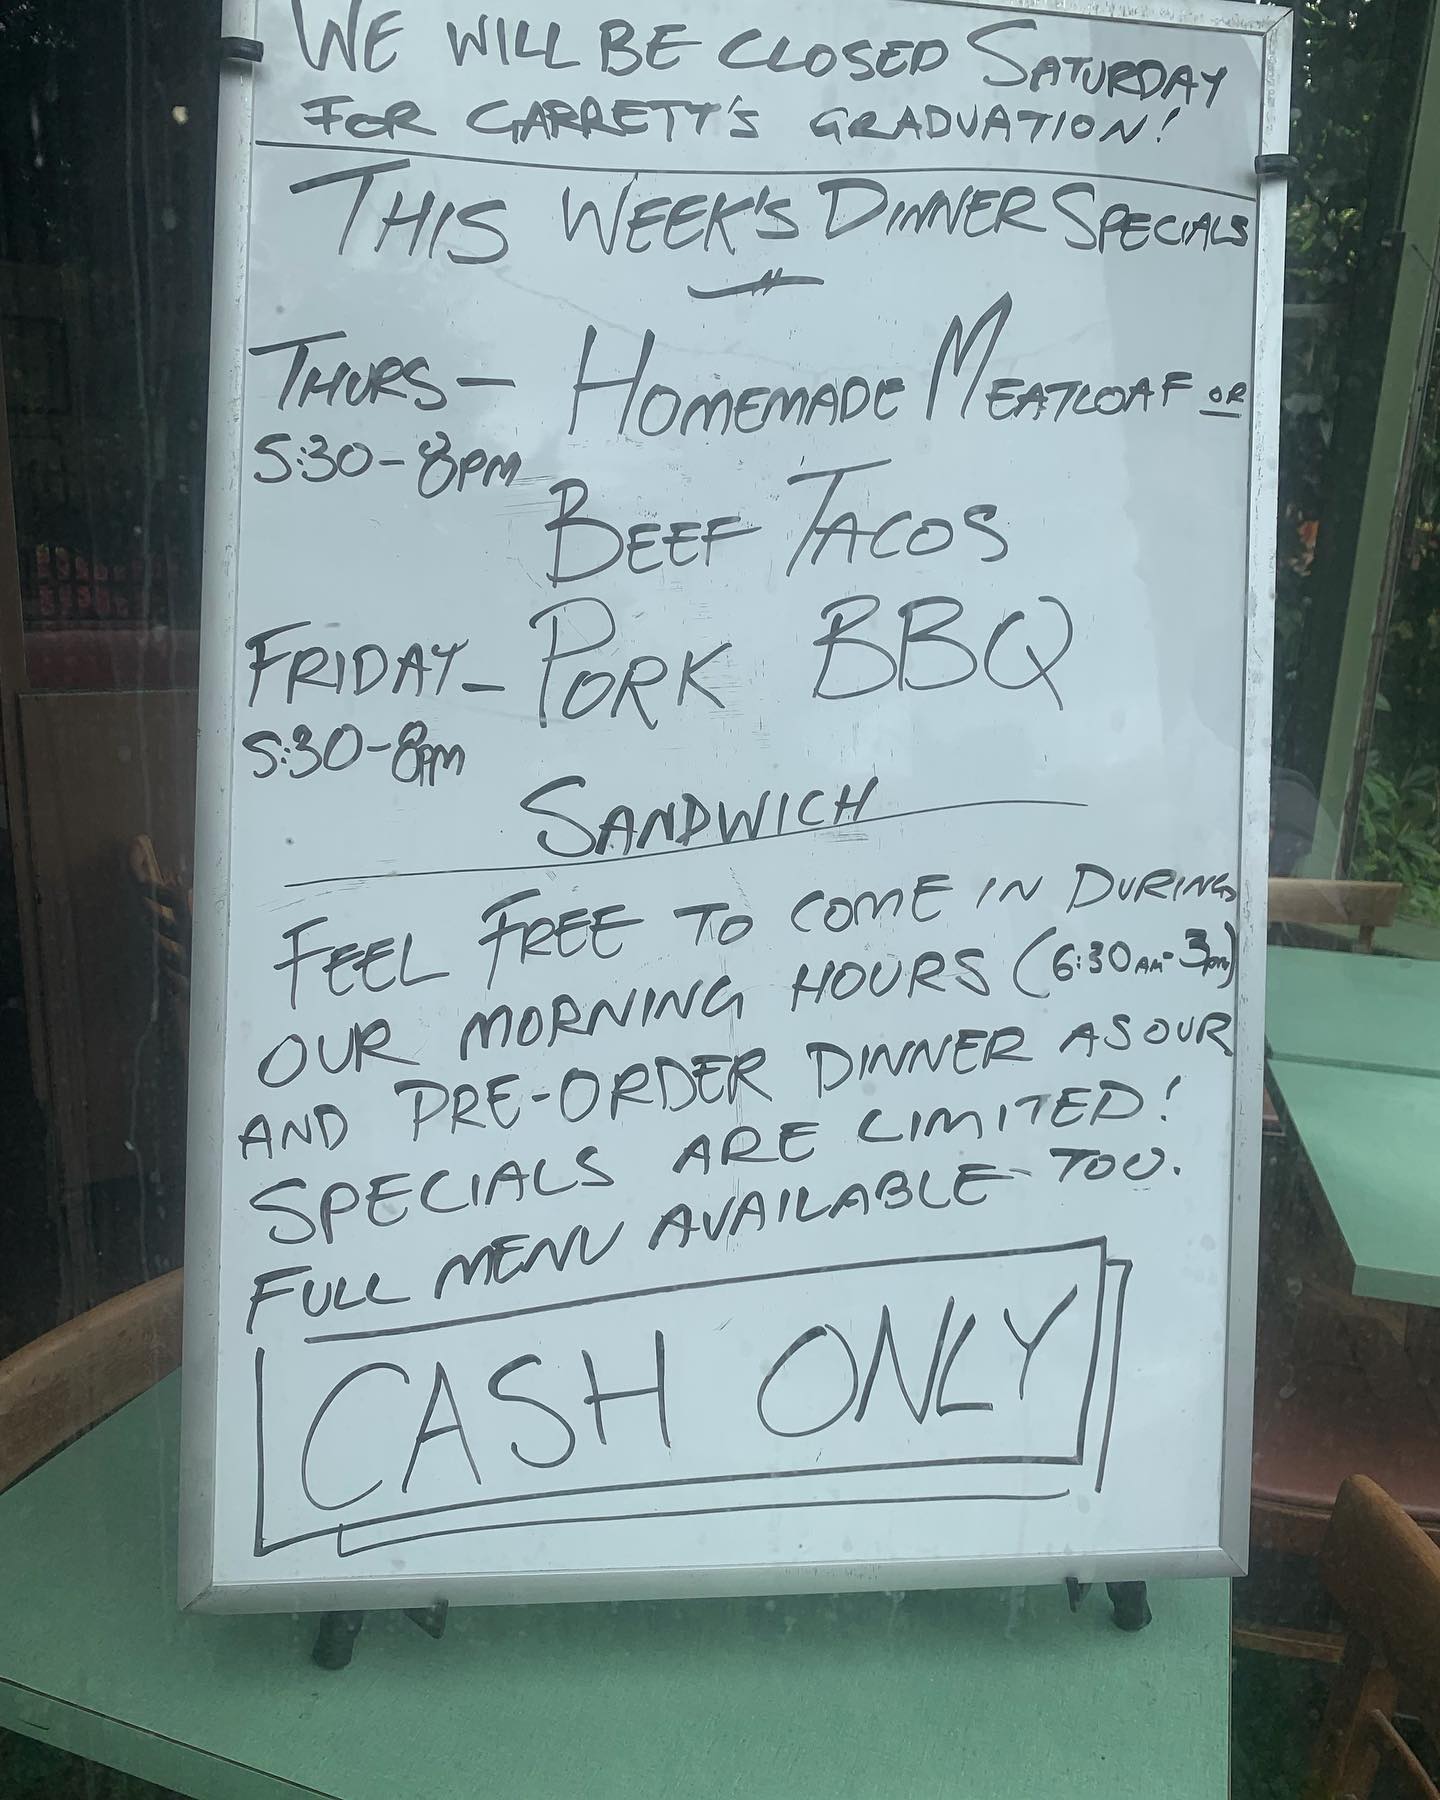 WE WILL BE CLOSED SATURDAY
FOR GARRETT'S GRADUATION!
THIS WEEK'S DINNER SPECIALS
THURS - HOMEMADE MEATLOAF OR
5:30-8PM
BEEF TACOS
FRIDAY - PORK BBQ
5:30-8PM
SANDWICH
FEEL FREE TO COME IN DURING
OUR MORNING HOURS (6:30AM-3PM)
AND PRE-ORDER DINNER AS OUR
SPECIALS ARE LIMITED!
FULL MENU AVAILABLE TOO.
CASH ONLY